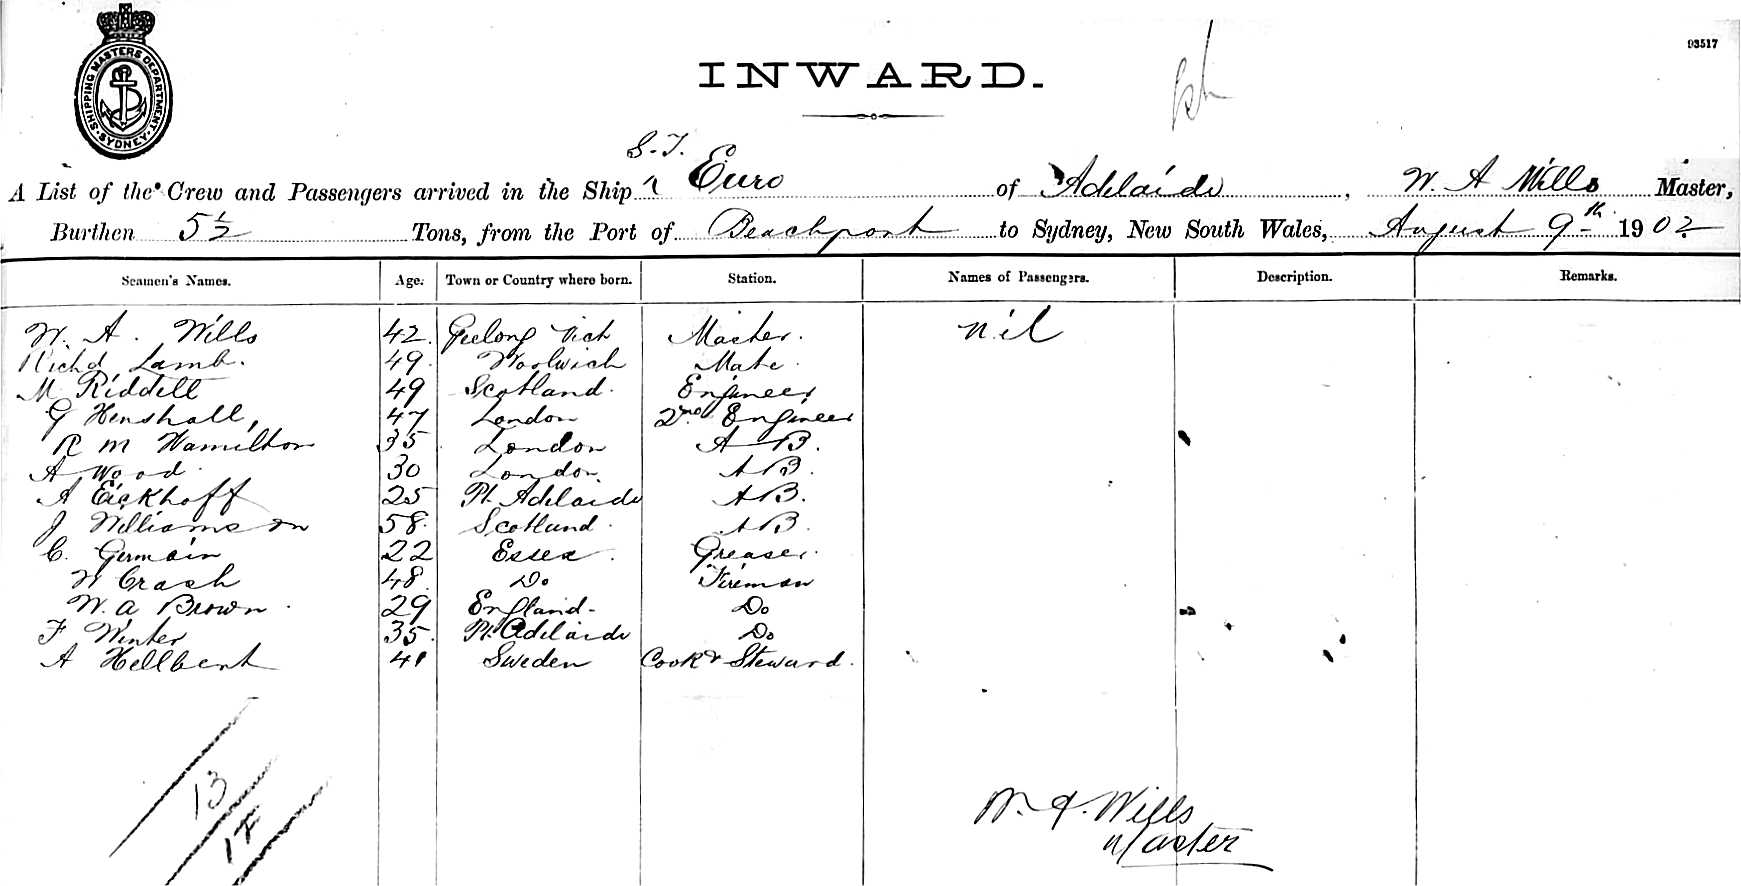 SHIPPING MASTERS DEPARTMENT. SYDNEY
93517
INWARD.
S.T.
A List of the Crew and Passengers arrived in the Ship Euro of Adelaide, W. A Wills Master,
Burthen 5½ Tons, from the Port of Beachport to Sydney, New South Wales, August 9th 1902
Seamen's Names. Age. Town or Country where born. Station. Names of Passengers. Description. Remarks.
W. A. Wills 42. Geelong Vict Master. nil
Richd Lamb. 49. Woolwich Mate
M Riddell 49 Scotland. Engineer
G Henshall, 47 London 2nd Engineer
R M Hamilton 35 London A B.
A Wood. 30 London. A B.
A Eickhoff 25 Pt. Adelaide A B.
J Williamson 58. Scotland. A B.
C. Germain 22 Essex. Greaser.
W Crash 48. Do Fireman
W. A Brown. 29 England- Do
F Winter 35. Pt. Adelaide Do
A Hellbent 41 Sweden Cook & Steward.
13
W. A. Wills
Master